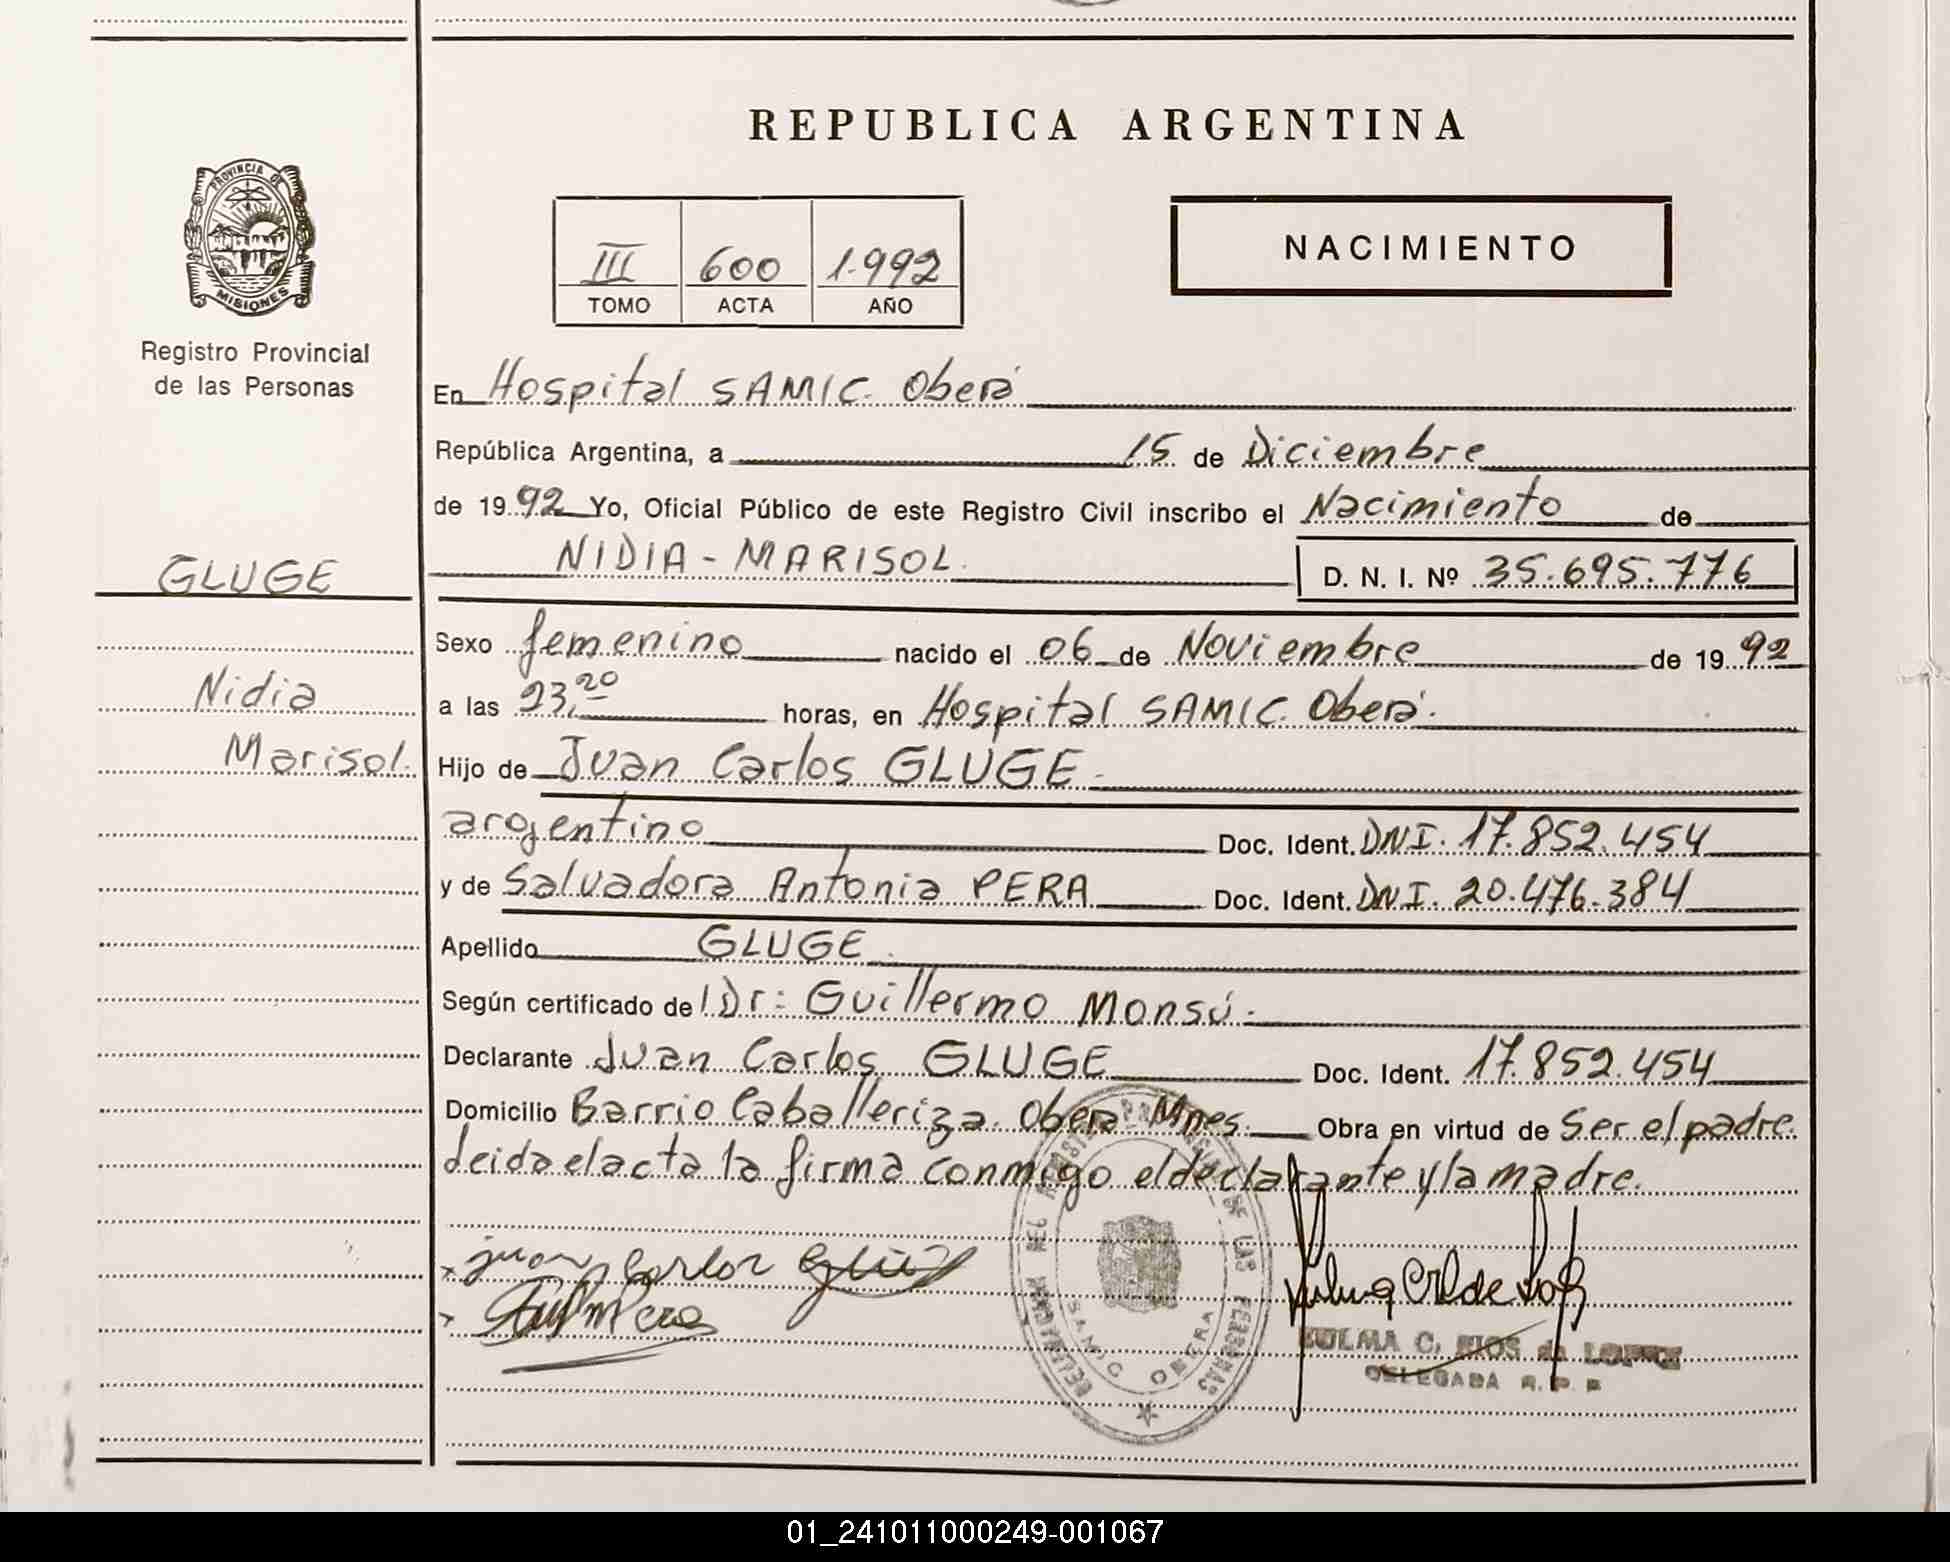 REPUBLICA ARGENTINA
PROVINCIA DE
MISIONES
Registro Provincial
de las Personas
III 600 1.992
TOMO ACTA AÑO
NACIMIENTO
En Hospital SAMIC. Oberá
República Argentina, a 15 de Diciembre
de 1992 Yo, Oficial Público de este Registro Civil inscribo el Nacimiento de
NIDIA - MARISOL. D. N. I. Nº 35.695.776
GLUGE
Nidia
Marisol.
Sexo femenino nacido el 06 de Noviembre de 1992
a las 23,20 horas, en Hospital SAMIC. Oberá.
Hijo de Juan Carlos GLUGE.
argentino Doc. Ident. DNI. 17.852.454
y de Salvadora Antonia PERA Doc. Ident. DNI. 20.476.384
Apellido GLUGE.
Según certificado de Dr: Guillermo Monsú.
Declarante Juan Carlos GLUGE Doc. Ident. 17.852.454
Domicilio Barrio Caballeriza. Oberá Mnes. Obra en virtud de Ser el padre.
Leida el acta la firma conmigo el declarante y la madre.
x juan Carlos
DELEGACION DEL REGISTRO PROVINCIAL DE LAS PERSONAS
SAMIC OBERA
ZULMA C. RIOS de LOPEZ
DELEGADA R. P. P
01_241011000249-001067